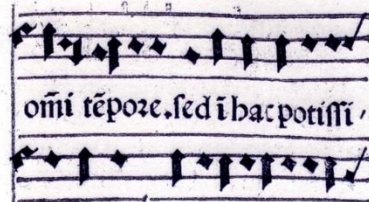 om̄i tēpore.sed ī hac potissi,